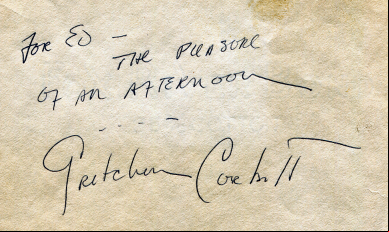 FOR ED –
THE PLEASURE
OF AN AFTERNOON
- - - –
Gretchen Corbett